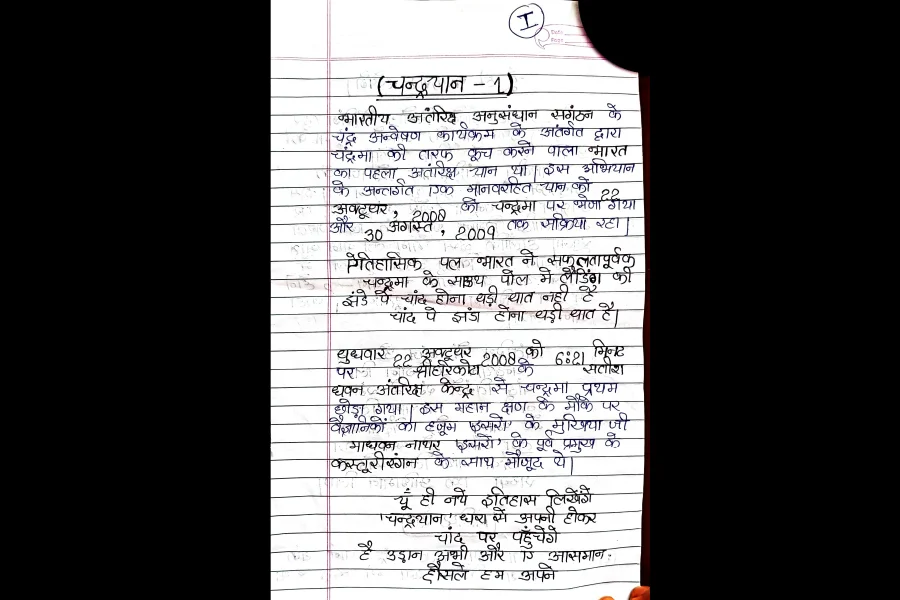 I
(चन्द्रयान - 1)
भारतीय अंतरिक्ष अनुसंधान सगंठन के
चंद्र अन्वेषण कार्यक्रम के अंतर्गत द्वारा
चंद्रमा की तरफ कूच करने वाला भारत
का पहला अतंरिक्ष यान था। इस अभियान
के अन्तर्गत एक मानवरहित यान को 22
अक्टूबर, 2008 को चन्द्रमा पर भेजा गया
और 30 अगस्त, 2009 तक सक्रिया रहा।
ऐतिहासिक पल भारत ने सफलतापूर्वक
चन्द्रमा के साऊथ पोल में लैंडिंग की
झंडे पे चांद होना बड़ी बात नही है
चांद पे झंडा होना बड़ी बात है।
बुधवार 22 अक्टूबर 2008 को 6:21 मिनट
पर श्रीहरिकोटा के सतीश
धवन अंतरिक्ष केन्द्र से चन्द्रमा प्रथम
छोड़ा गया। इस महान क्षण के मौके पर
वैज्ञानिकों का हजूम 'इसरो' के मुखिया जी
माधवन नायर 'इसरो' के पूर्व प्रमुख के
कस्तूरीरंगन के साथ मौजूद थे।
यूं ही नये इतिहास लिखेंगे
'चन्द्रयान' धरा से अपनी होकर
चांद पर पहुँचेगे
है उड़ान अभी और ए आसमान.
हौसले हम अपने